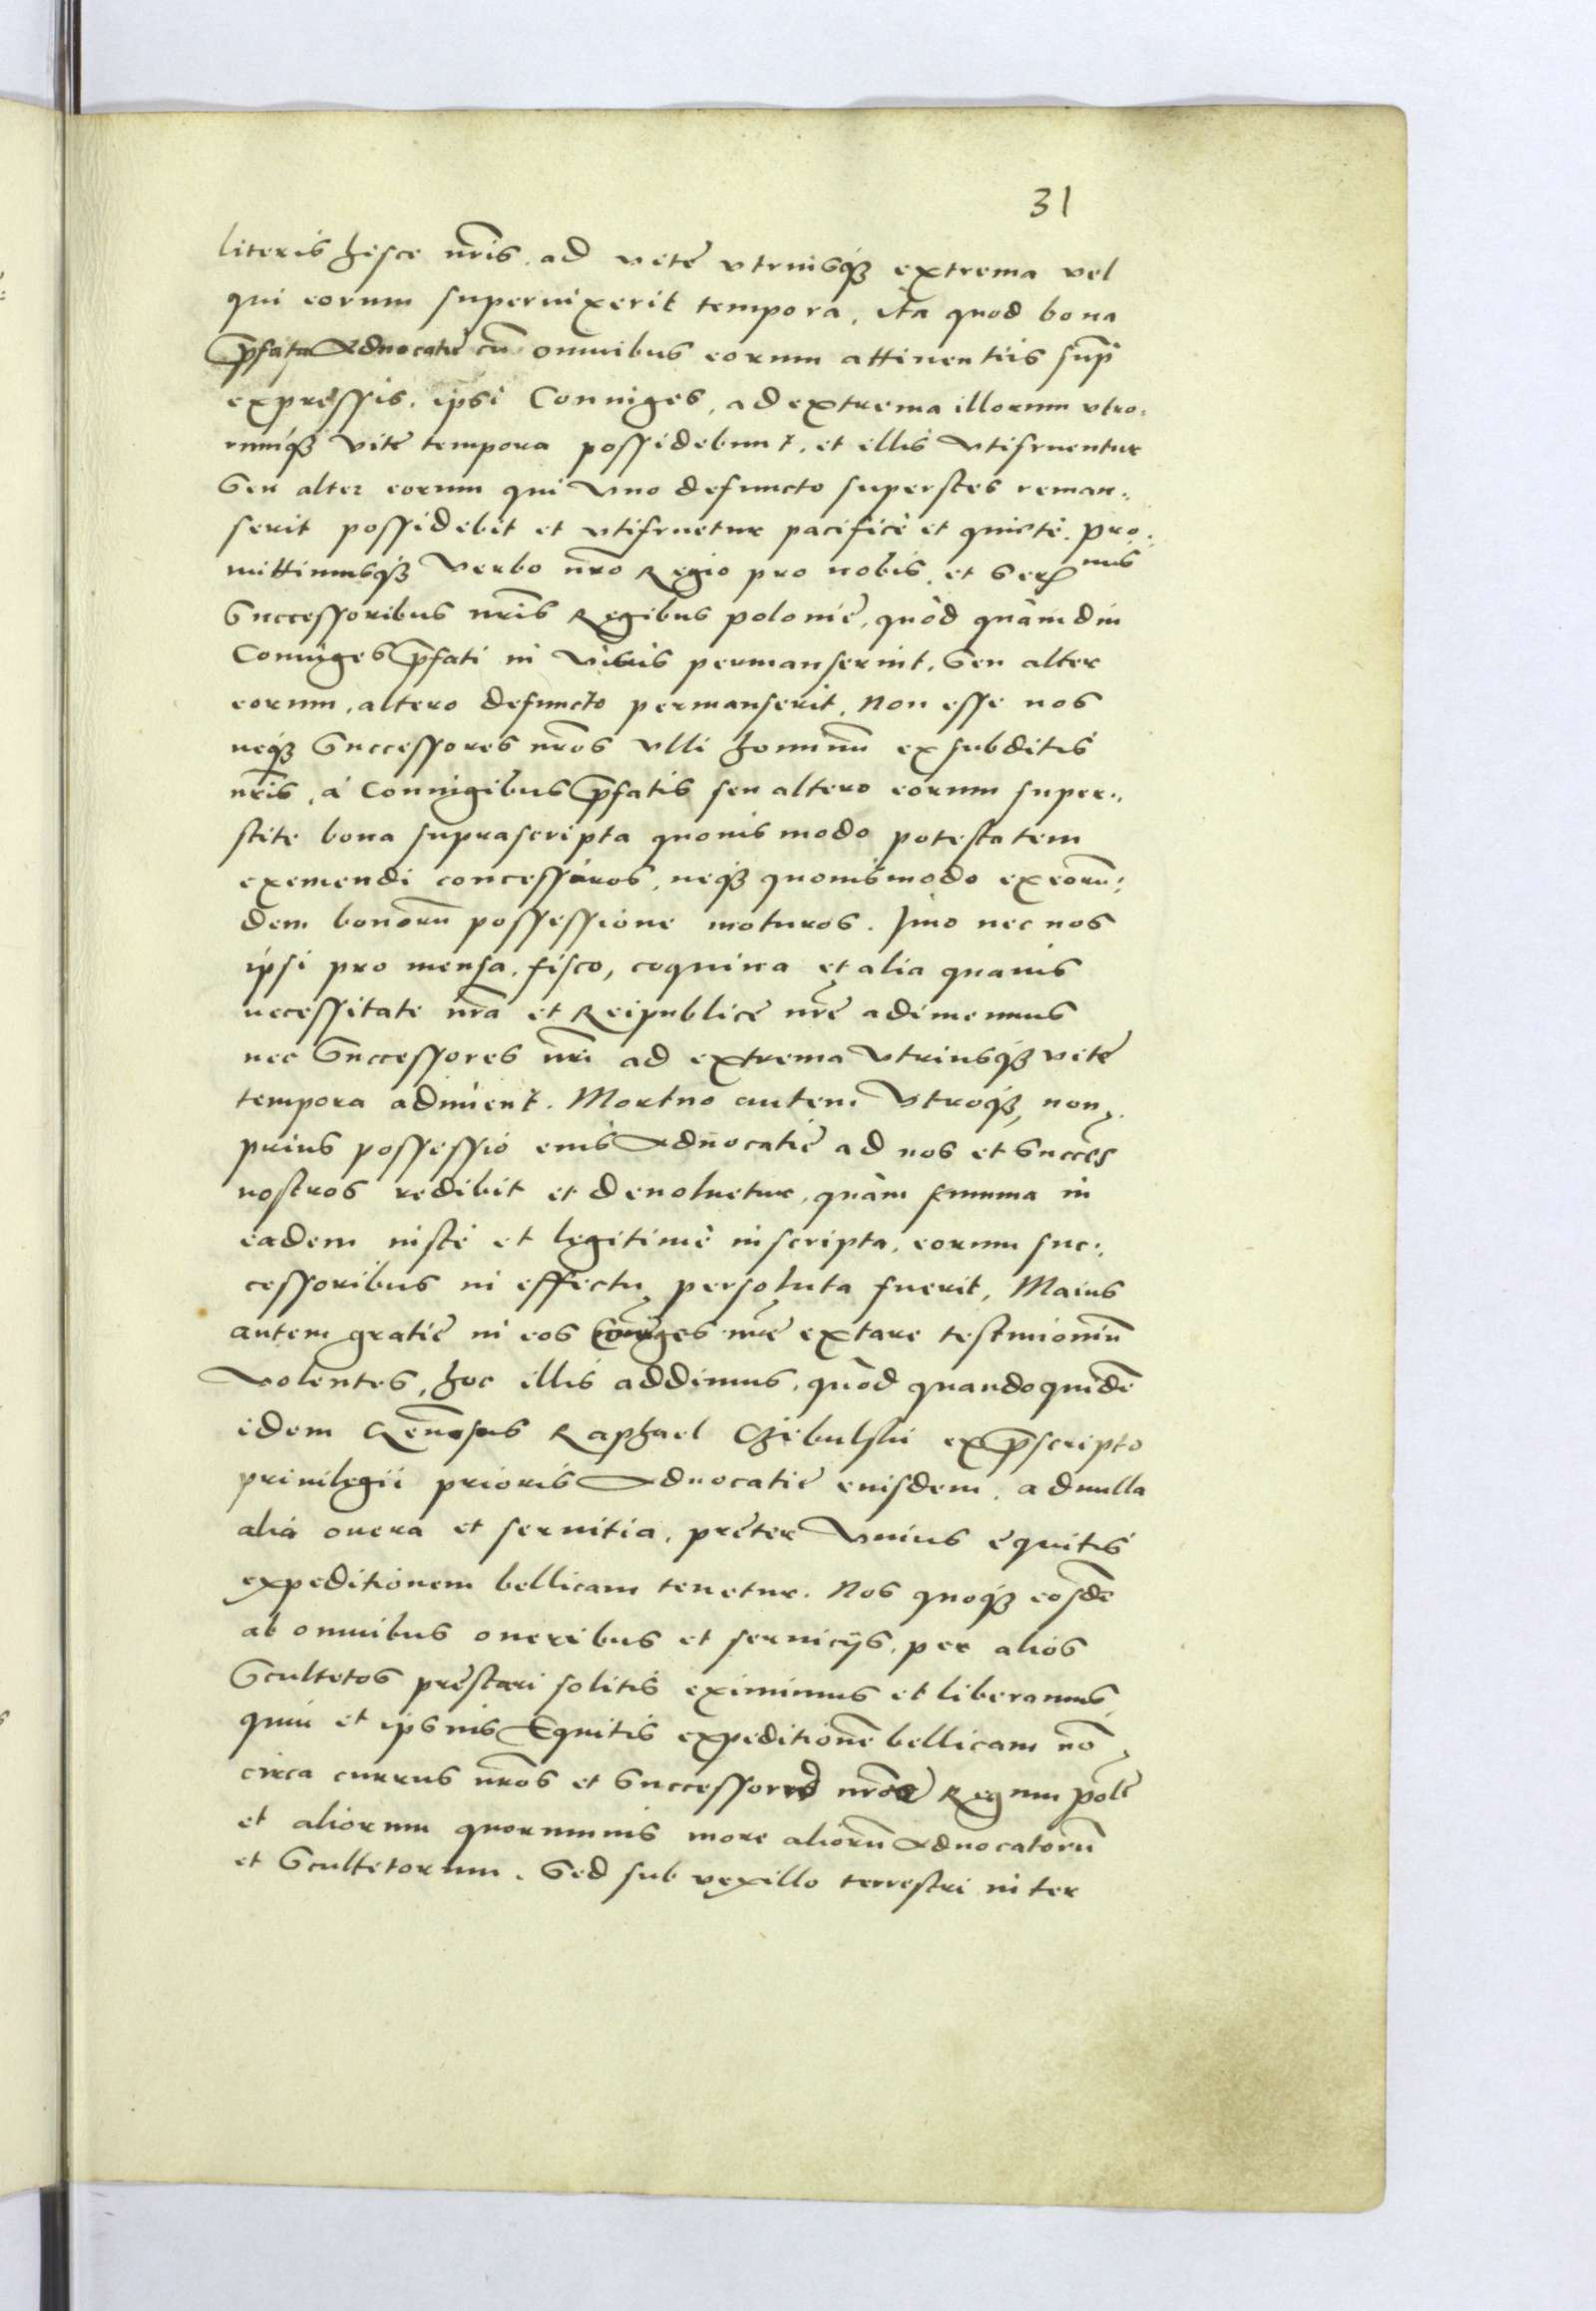 31
literis hisce nr̃is. ad vitę vtriusq; extrema vel
qui eorum superuixerit tempora, ita quod bona
p̃fata Aduocatię cũ omnibus eorum attinentiis sup̃
expressis. ipsi Coniuges, ad extrema illorum vtro:
rumq; vitę tempora possidebunt, et illis vtifruentur
Seu alter eorum qui vno defuncto superstes reman:
serit possidebit et vtifruetur pacificè et quietè. Pro:
mittimusq; verbo nr̃o Regio pro nobis, et Ser
nus
Successoribus nr̃is Regibus polonię, quòd quàmdiu
Coniuges p̃fati in viuis permanserint. Seu alter
eorum, altero defuncto permanserit, Non esse nos
neq; Successores nr̃os vlli hominũ ex subditis
nr̃is, à Coniugibus p̃fatis seu altero eorum super:
stite bona suprascripta quouis modo potestatem
exemendi concessuros, neq; quouismodo ex eorũ:
dem bonorũ possessione moturos. Imo nec nos
ipsi pro mensa, fisco, coquina et alia quauis
necessitate nr̃a et Reipublicę nr̃ę adimemus
nec Successores nr̃i ad extrema vtriusq; vitę
tempora adiment. Mortuo autem vtroq;, non
prius possessio eius Aduocatię ad nos et Success̃
nostros redibit et deuoluetur, quàm summa in
eadem iustè et legitimè inscripta, eorum suc:
cessoribus in effectu persoluta fuerit, Maius
autem gratię in eos Coniuges nr̃ę extare testimoniũ
volentes, hoc illis addimus, quòd quandoquidẽ
idem Gen̄osus Raphael Czibulski ex p̃scripto
priuilegii prioris Aduocatię eiusdem, ad nulla
alia onera et seruitia, pręter vnius equitis
expeditionem bellicam tenetur. Nos quoq; eosdẽ
ab omnibus oneribus et seruicijs, per alios
Scultetos pręstari solitis eximimus et liberamus,
quin et ipsius Equitis expeditionẽ bellicam nõ
circa currus nr̃os et Successorum nr̃or̃ Regum pol̃ę
et aliorum quorumuis more aliorũ Aduocatorũ
et Scultetorum. Sed sub vexillo terrestri inter